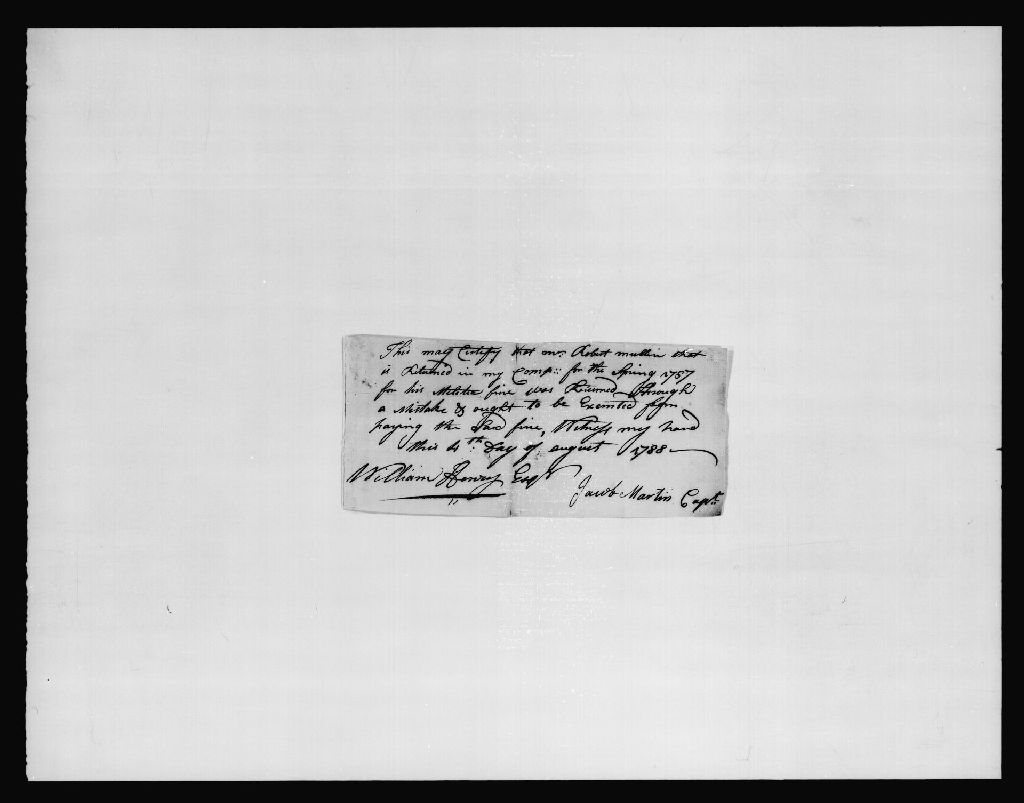 This may Certify that mr. Robert mullin that
is Returned in my Comp:: for the Spring 1787
for his Militia fine was Returned Through
a Mistake & ought to be Exemted from
paying the Said fine, Witness my hand
this 4th Day of august 1788
William Henry Esqr
Jacob Martin Capt.